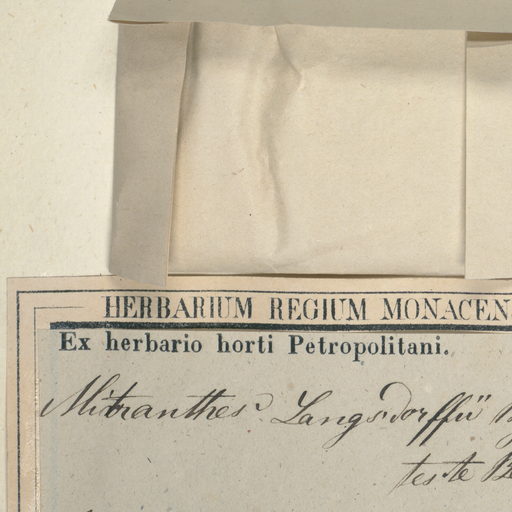 HERBARIUM REGIUM MONACEN
Ex herbario horti Petropolitani.
Mitranthes Langsdorffii
teste Be